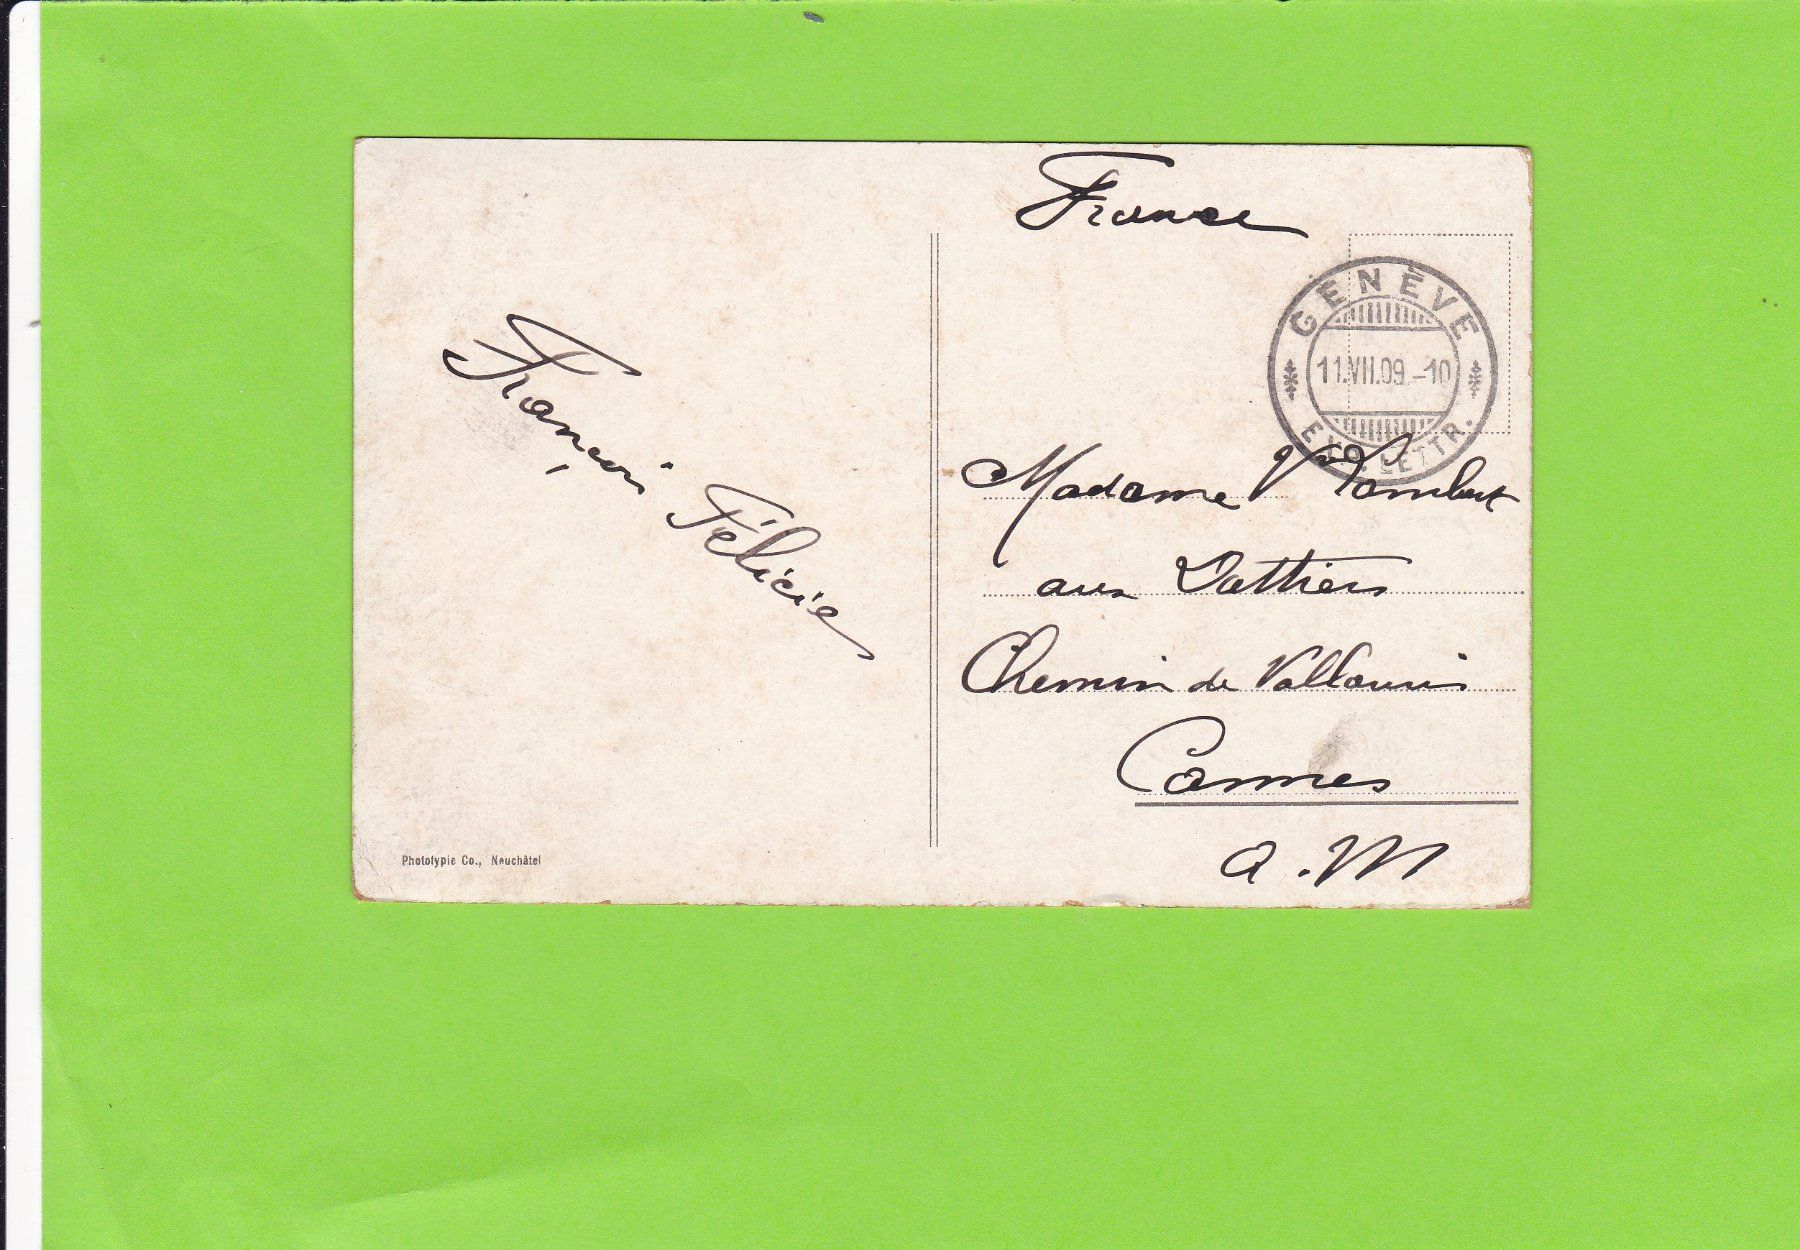 France
GENÈVE
11.VII.09.-10
EXP. LETTR.
François Félicie
Madame Vve Lambert
aux Dattiers
Chemin de Vallauris
Cannes
A. M
Phototypie Co., Neuchâtel